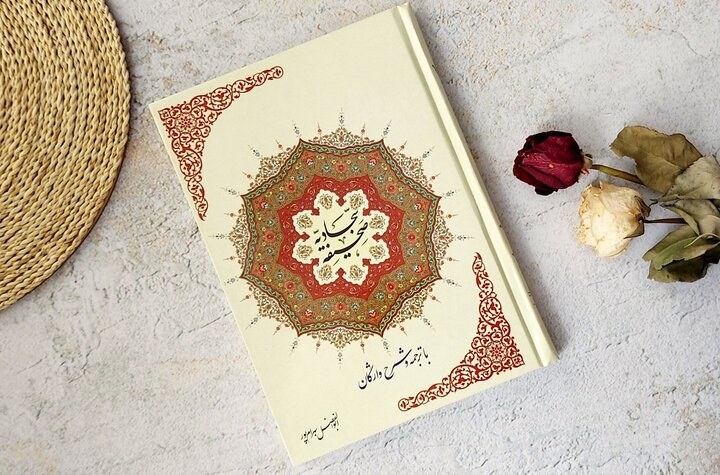 صحیفه سجادیه
با ترجمه و شرح واژگان
ابوالفضل بهرام‌پور